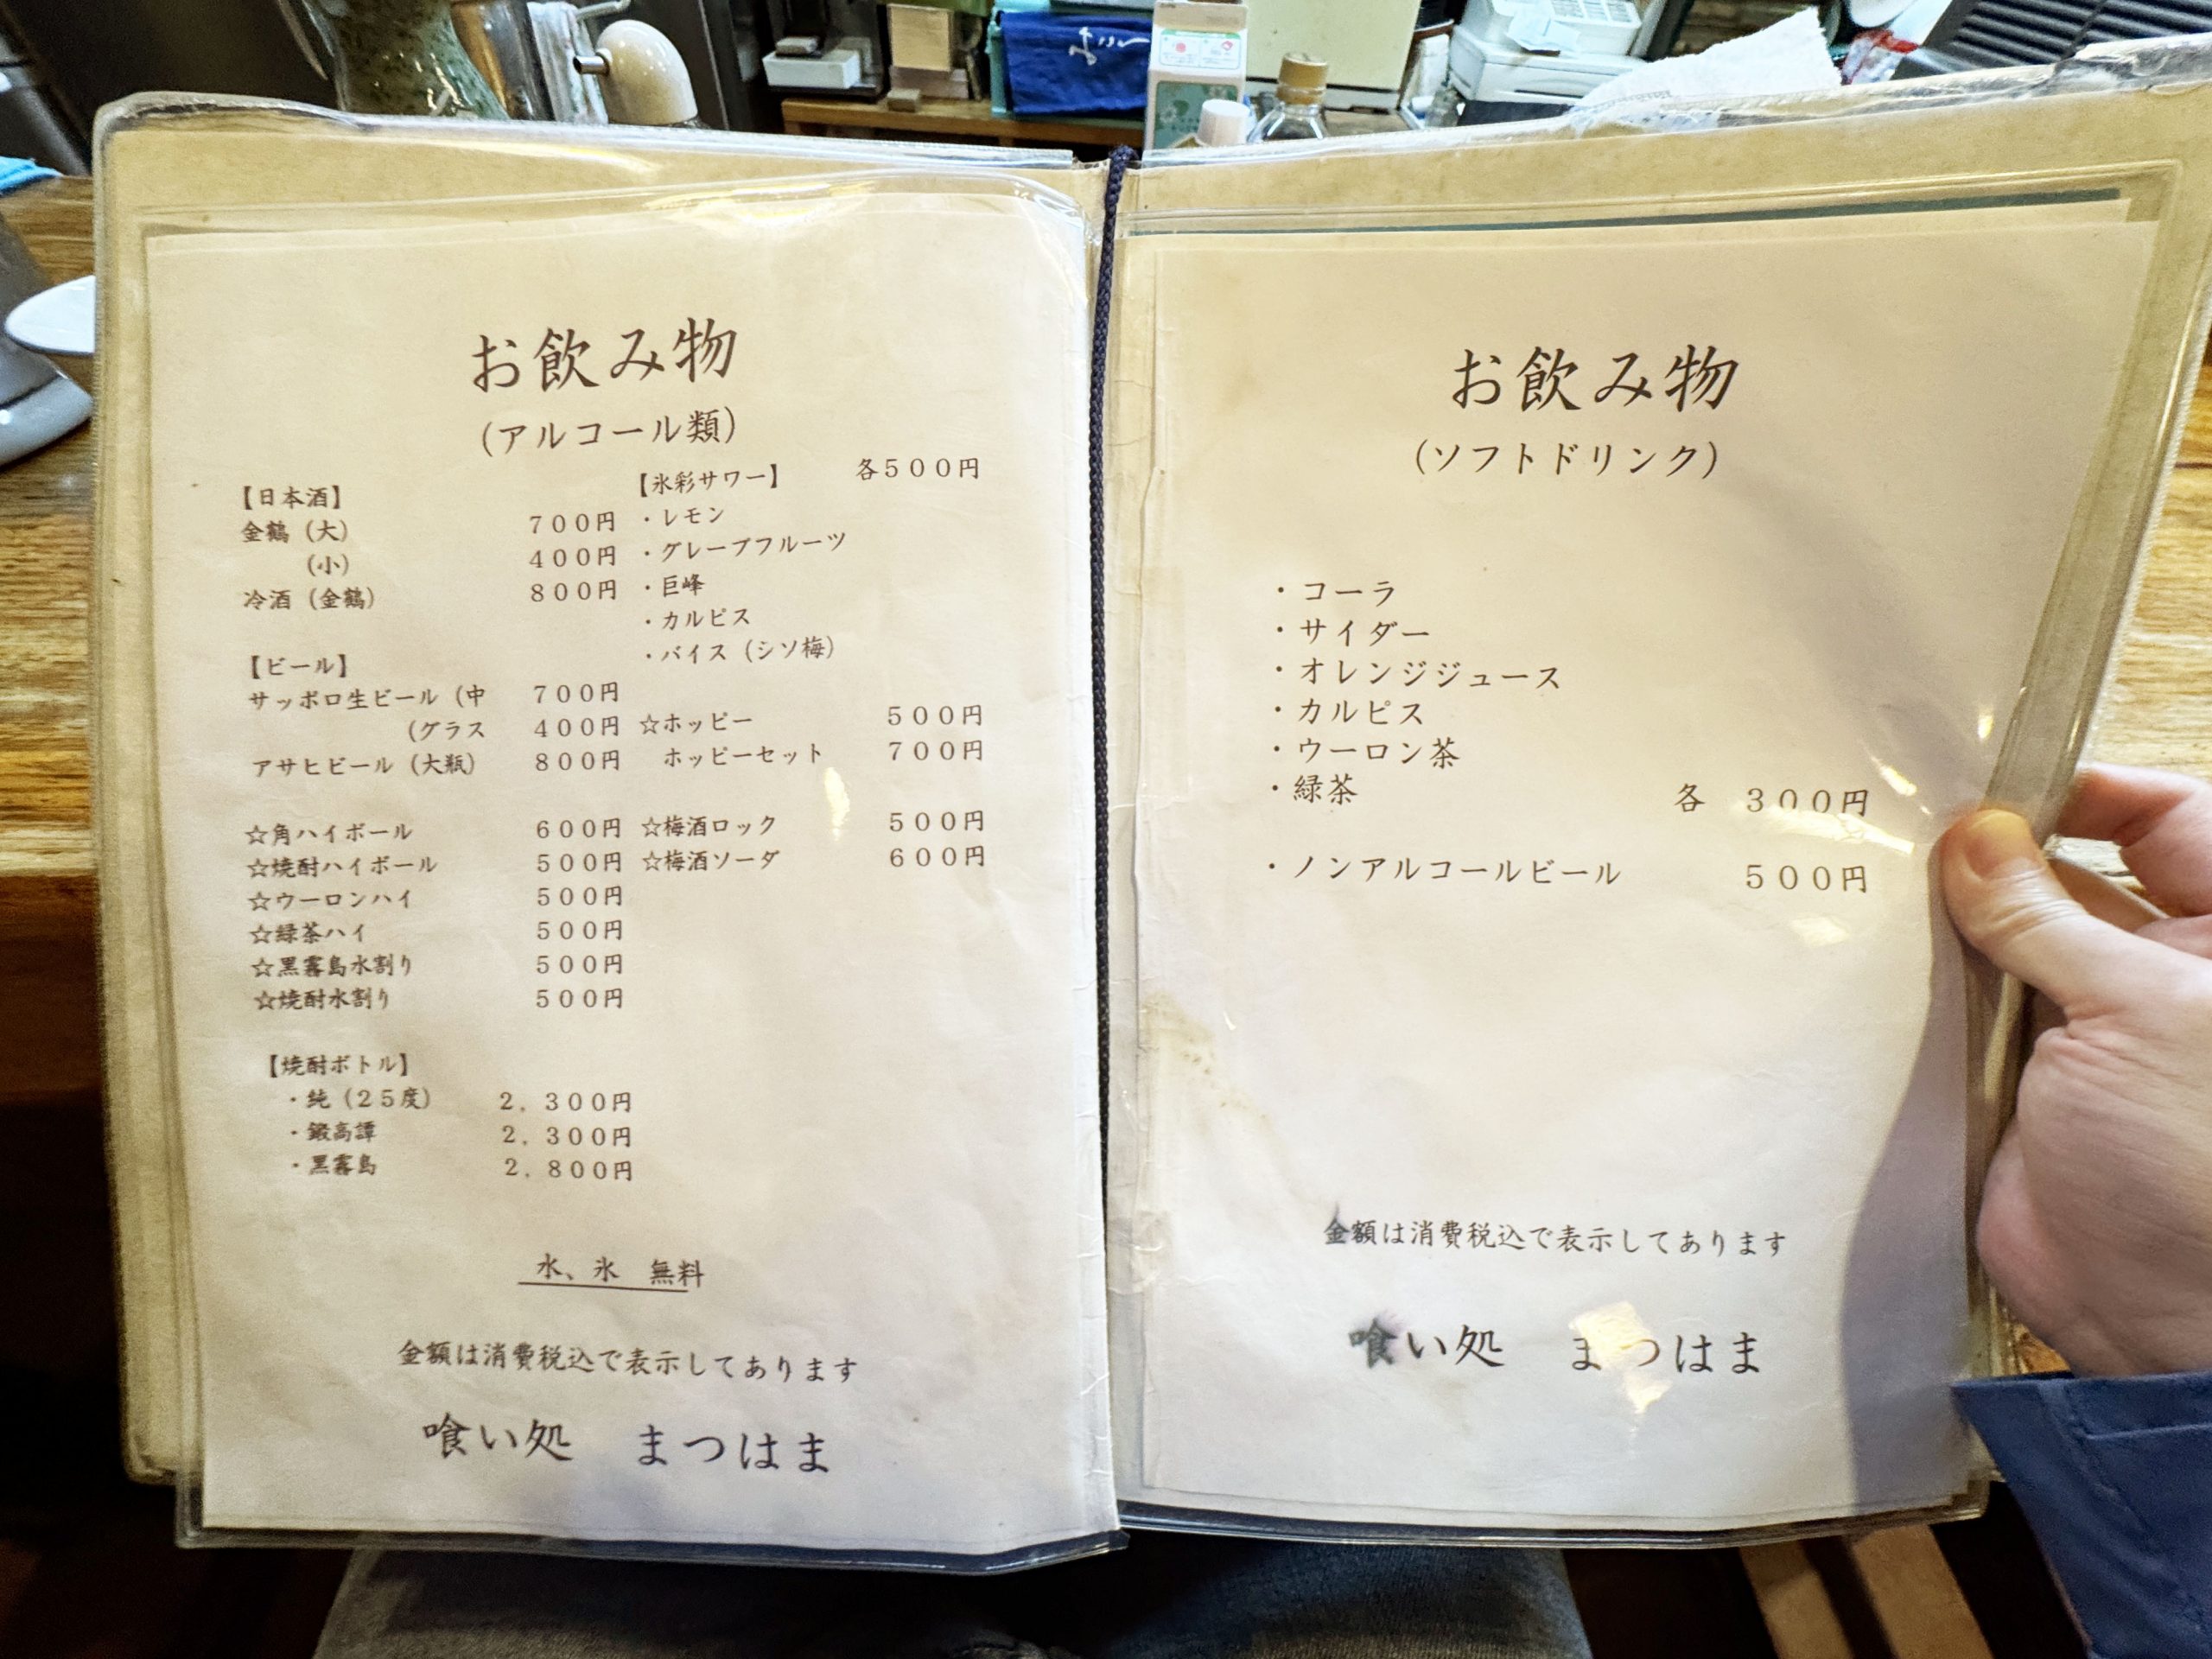 お飲み物
(アルコール類)
【日本酒】
金鶴（大） 700円
（小） 400円
冷酒（金鶴） 800円
【ビール】
サッポロ生ビール（中 700円
（グラス 400円
アサヒビール（大瓶） 800円
☆角ハイボール 600円
☆焼酎ハイボール 500円
☆ウーロンハイ 500円
☆緑茶ハイ 500円
☆黒霧島水割り 500円
☆焼酎水割り 500円
【焼酎ボトル】
・純（25度） 2,300円
・鍛高譚 2,300円
・黒霧島 2,800円
【氷彩サワー】 各500円
・レモン
・グレープフルーツ
・巨峰
・カルピス
・バイス（シソ梅）
☆ホッピー 500円
ホッピーセット 700円
☆梅酒ロック 500円
☆梅酒ソーダ 600円
水、氷 無料
金額は消費税込で表示してあります
喰い処 まつはま
お飲み物
(ソフトドリンク)
・コーラ
・サイダー
・オレンジジュース
・カルピス
・ウーロン茶
・緑茶
各 300円
・ノンアルコールビール 500円
金額は消費税込で表示してあります
喰い処 まつはま